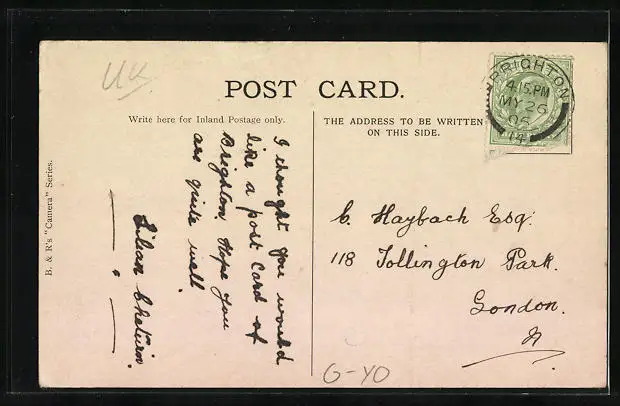 UK
POST CARD.
Write here for Inland Postage only.
THE ADDRESS TO BE WRITTEN
ON THIS SIDE.
BRIGHTON
4.15.PM
MY 26
05
14
B. & R's "Camera" Series.
I thought you would
like a post card of
Brighton Hope you
are quite well.
Lilian
C. Haybach Esq.
118 Tollington Park.
London.
N
G-YO